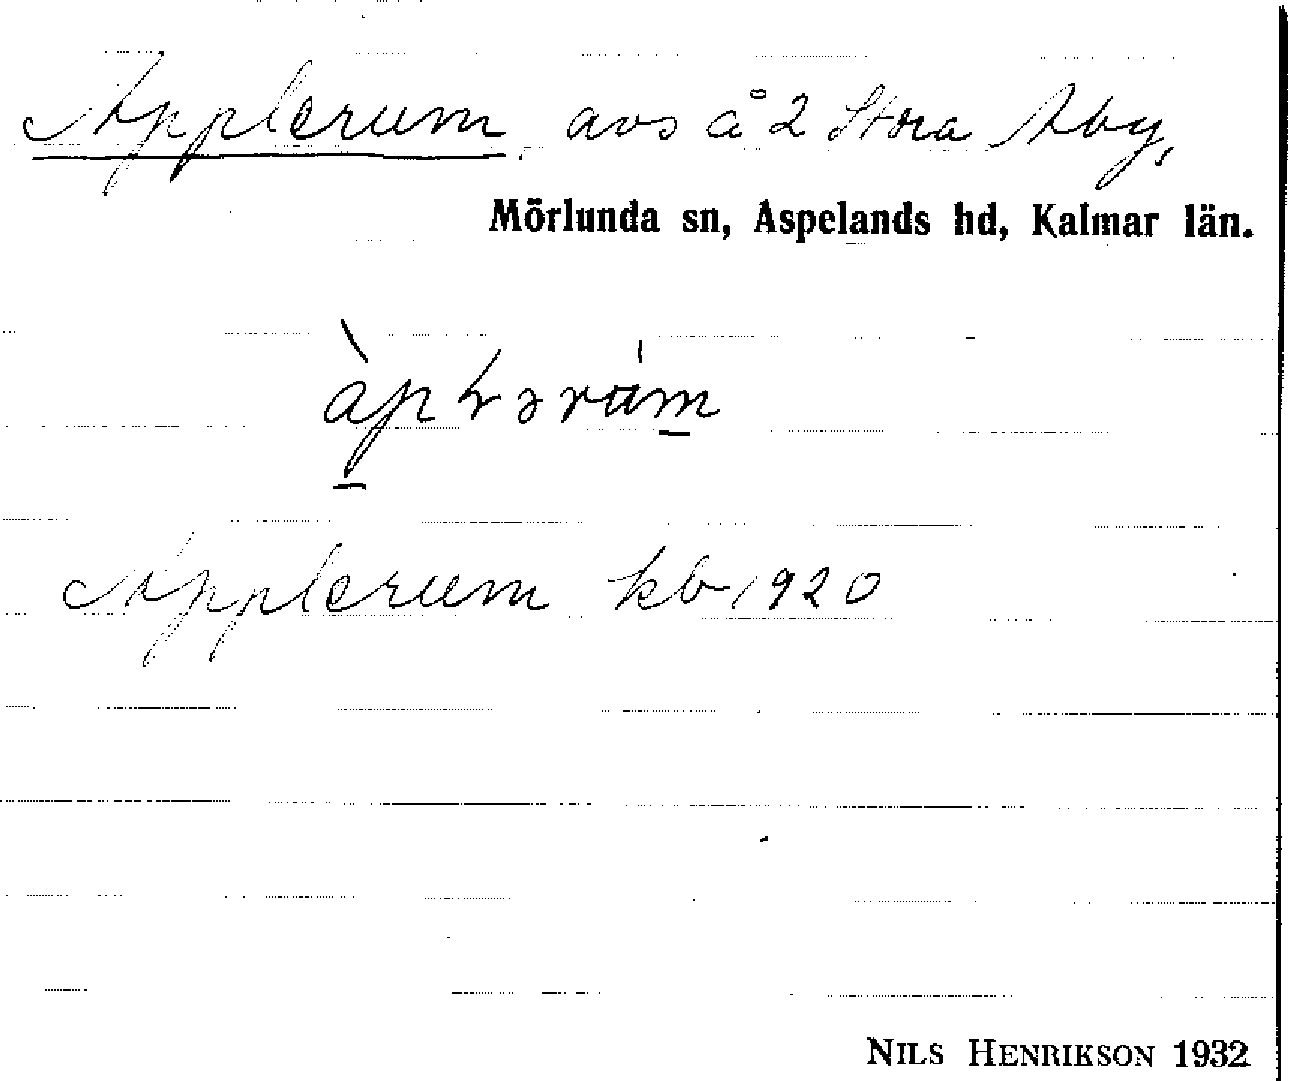 Applerum, avs å 2 Stora Åby,
Mörlunda sn, Aspelands hd, Kalmar län.
Applerum kb 1920
NILS HENRIKSON 1932